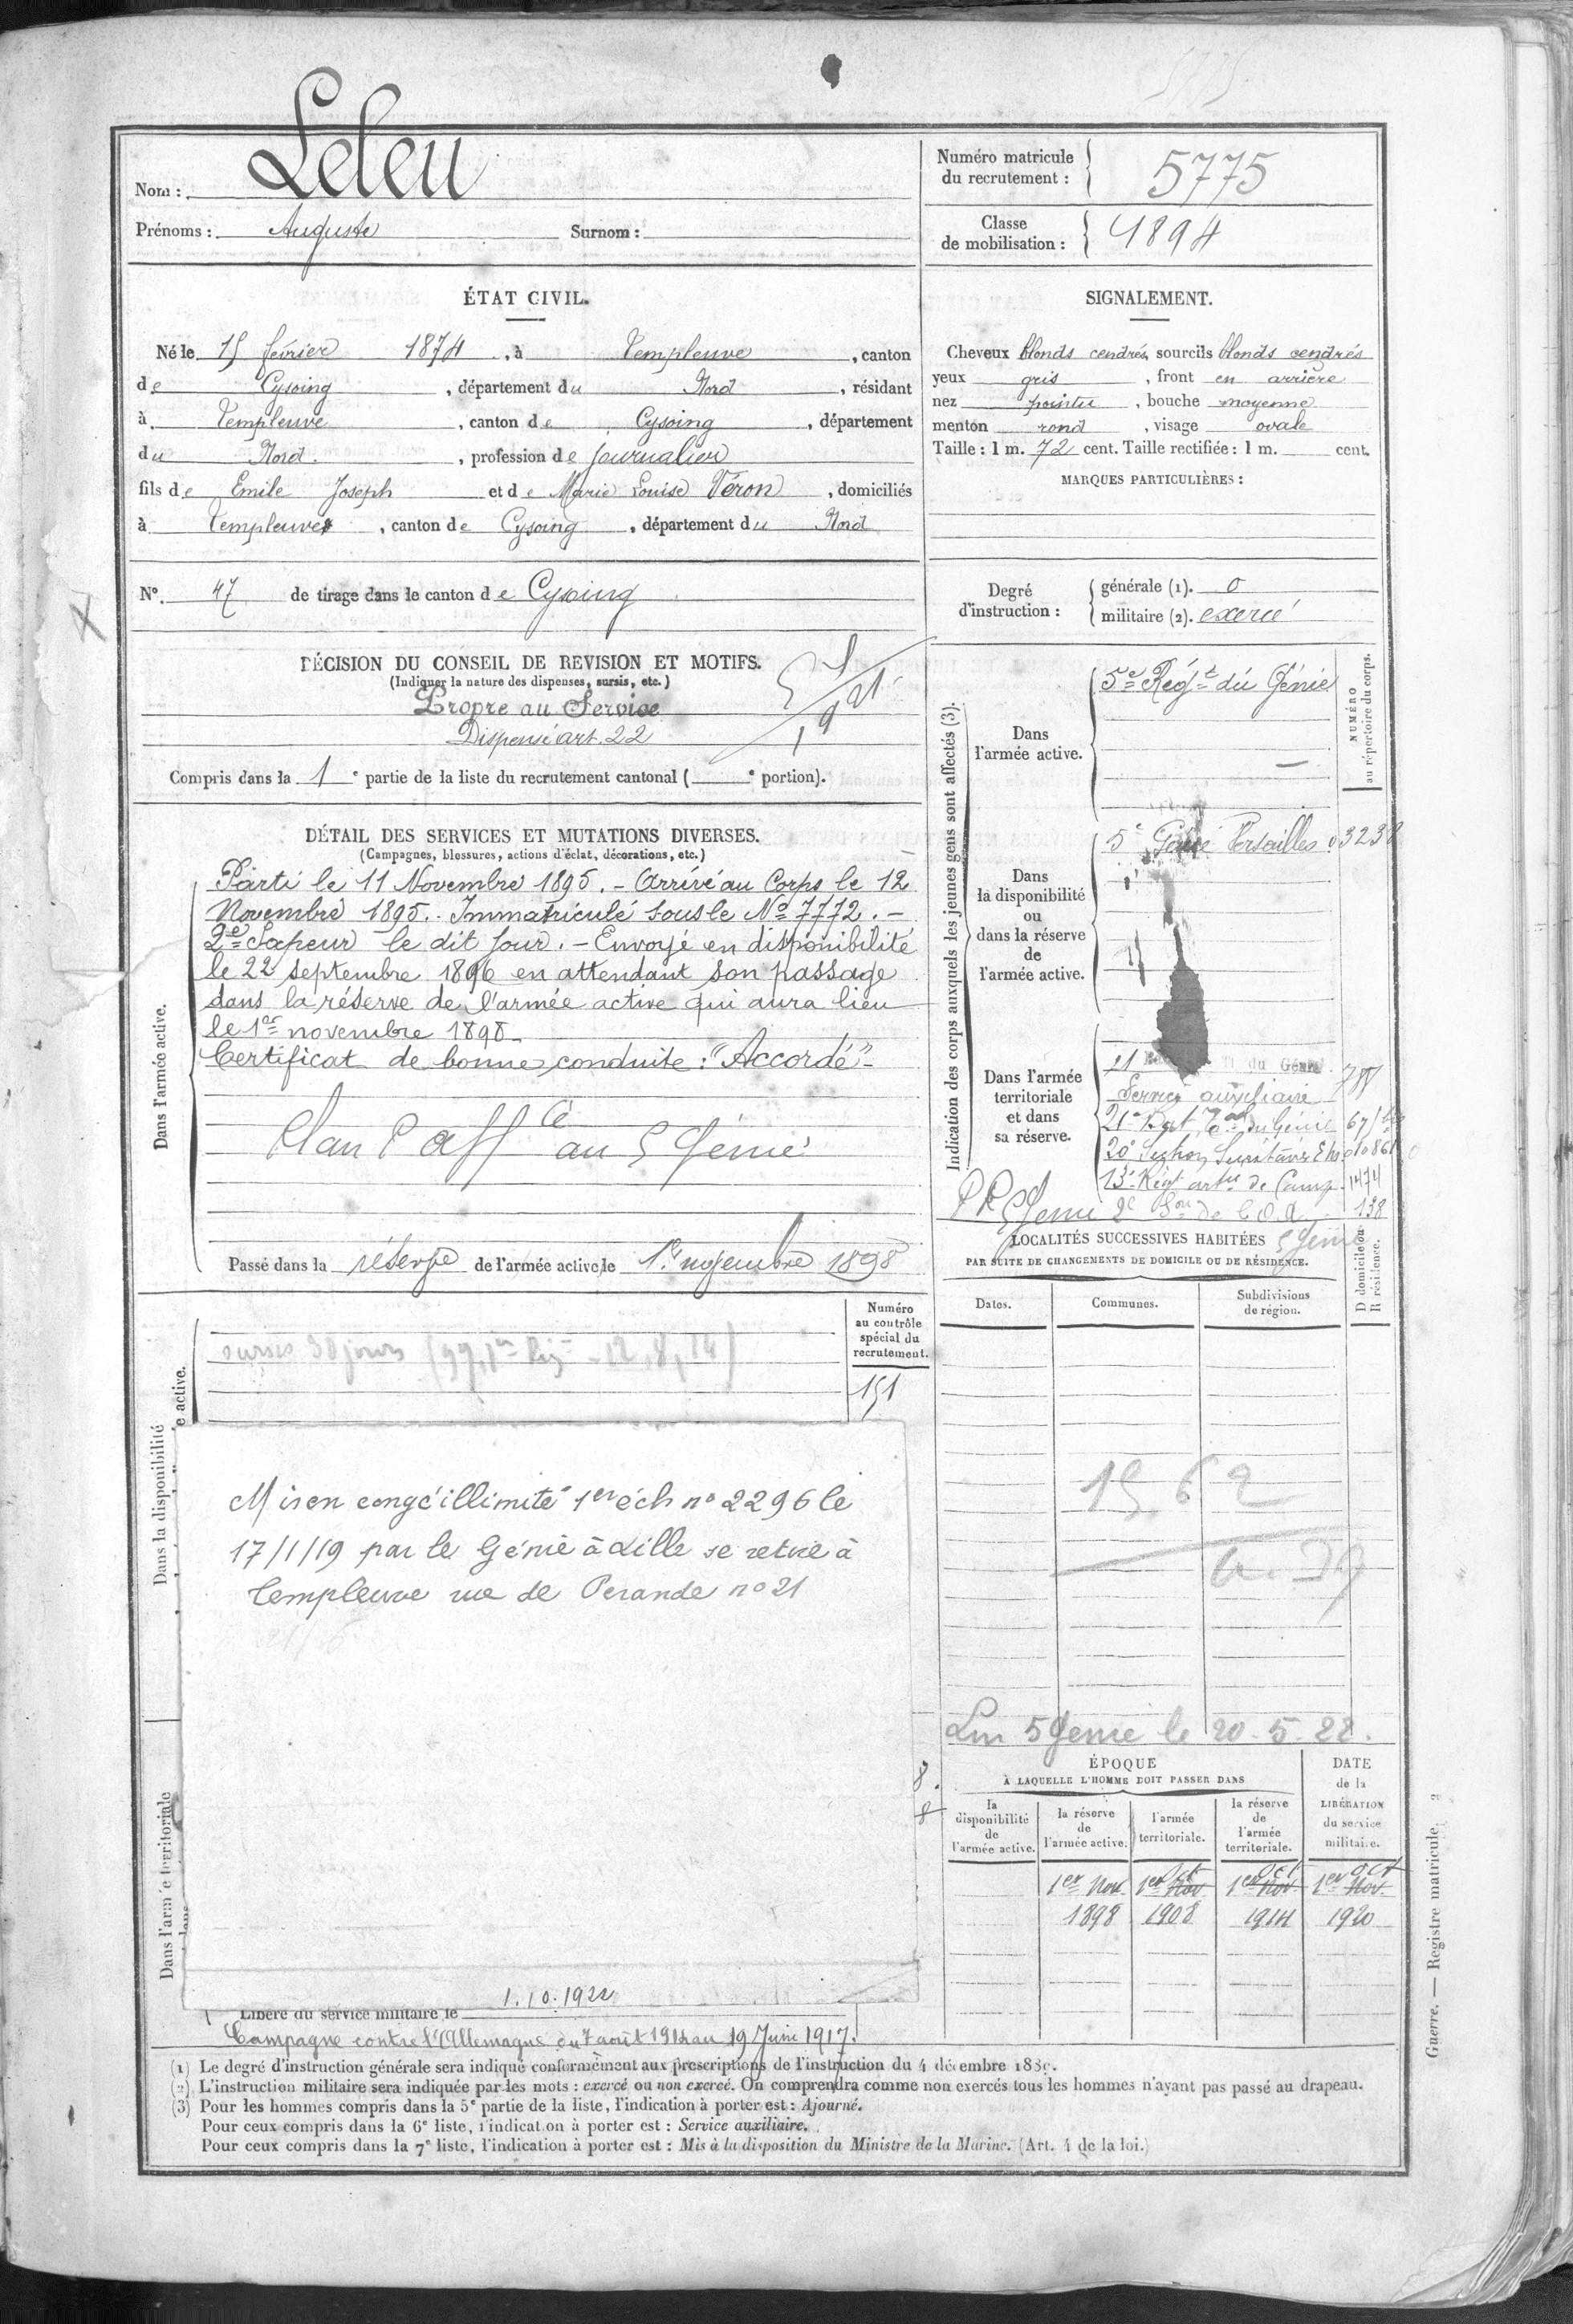 Nom : Leleu
Prénoms : Auguste Surnom :
Numéro matricule du recrutement : 5775
Classe de mobilisation : 1894
ÉTAT CIVIL.
Né le 15 février 1874, à Templeuve, canton
de Cysoing, département du Nord, résidant
à Templeuve, canton de Cysoing, département
du Nord, profession de journalier
fils de Emile Joseph et de Marie Louise Véron, domiciliés
à Templeuve, canton de Cysoing, département du Nord
N° 47 de tirage dans le canton de Cysoing
SIGNALEMENT.
Cheveux blonds cendrés, sourcils blonds cendrés
yeux gris, front en arrière
nez pointu, bouche moyenne
menton rond, visage ovale
Taille : 1 m. 72 cent. Taille rectifiée : 1 m. cent.
MARQUES PARTICULIÈRES :
Degré d'instruction :
générale (1). 0
militaire (2). exercé
DÉCISION DU CONSEIL DE REVISION ET MOTIFS.
(Indiquer la nature des dispenses, sursis, etc.)
Propre au Service
Dispensé art. 22
Compris dans la 1e partie de la liste du recrutement cantonal ( e portion).
DÉTAIL DES SERVICES ET MUTATIONS DIVERSES.
(Campagnes, blessures, actions d'éclat, décorations, etc.)
Dans l'armée active.
Parti le 11 Novembre 1895. - Arrivé au Corps le 12
Novembre 1895. Immatriculé sous le No 7772. -
2e Sapeur le dit jour. - Envoyé en disponibilité
le 22 septembre 1896 en attendant son passage
dans la réserve de l'armée active qui aura lieu
le 1er novembre 1898
Certificat de bonne conduite : "Accordé" -
Plan P aff cé au 5 Génie
Passé dans la réserve de l'armée active le 1er novembre 1898
Indication des corps auxquels les jeunes gens sont affectés (3).
NUMÉRO au répertoire du corps.
Dans l'armée active.
5e Régt du Génie
Dans la disponibilité ou dans la réserve de l'armée active.
5e Génie Versailles 03238
Dans l'armée territoriale et dans sa réserve.
21 du Génie
Service auxiliaire
21e Bat. Tal du Génie
13e Régt artie de Camp. 1474
138
LOCALITÉS SUCCESSIVES HABITÉES
PAR SUITE DE CHANGEMENTS DE DOMICILE OU DE RÉSIDENCE.
D domicile ou R résidence.
Dates. Communes. Subdivisions de région.
Dans la disponibilité
e active.
Numéro au contrôle spécial du recrutement.
sursis 30 jours
151
Mis en congé illimité 1er éch no 2296 le
17/1/19 par le Génie à Lille se retire à
Templeuve rue de Perande no 21
1562
Lm 5 Genie le 20-5-22.
ÉPOQUE
À LAQUELLE L'HOMME DOIT PASSER DANS
la disponibilité de l'armée active.
la réserve de l'armée active.
l'armée territoriale.
la réserve de l'armée territoriale.
DATE de la LIBÉRATION du service militaire.
1er Nov. 1er Nov Oct 1er Nov Oct 1er Nov. Oct
1898 1908 1914 1920
Dans l'armée territoriale
Libéré du service militaire le 1.10.1922
Campagne contre l'Allemagne du 7 août 1914 au 19 Juin 1917.
(1) Le degré d'instruction générale sera indiqué conformément aux prescriptions de l'instruction du 4 décembre 1889.
(2) L'instruction militaire sera indiquée par les mots : exercé ou non exercé. On comprendra comme non exercés tous les hommes n'ayant pas passé au drapeau.
(3) Pour les hommes compris dans la 5e partie de la liste, l'indication à porter est : Ajourné.
Pour ceux compris dans la 6e liste, l'indication à porter est : Service auxiliaire.
Pour ceux compris dans la 7e liste, l'indication à porter est : Mis à la disposition du Ministre de la Marine. (Art. 4 de la loi.)
Guerre. — Registre matricule